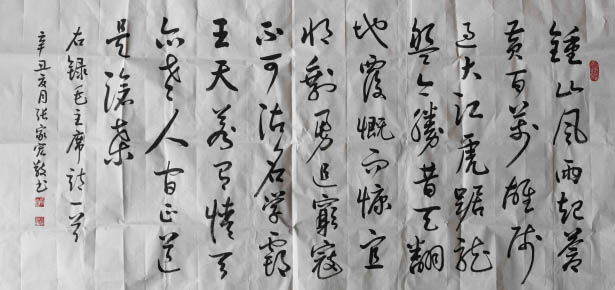 鍾山风雨起蒼
黄百萬雄师
过大江虎踞龙
盤今勝昔天翻
地覆慨而慷宜
将剩勇追窮寇
不可沽名学霸
王天若有情天
亦老人间正道
是滄桑
右録毛主席诗一首
辛丑夏月张家宏敬书